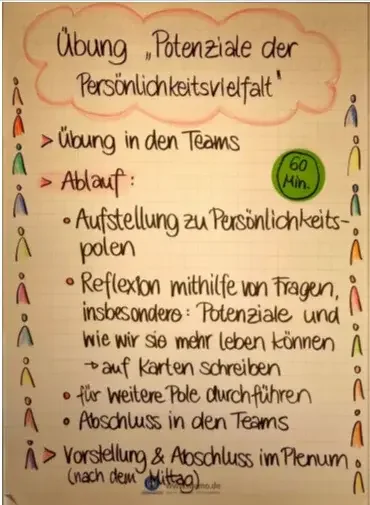 Übung „Potenziale der
Persönlichkeitsvielfalt"
> Übung in den Teams
60
Min.
> Ablauf:
• Aufstellung zu Persönlichkeits-
polen
• Reflexion mithilfe von Fragen,
insbesondere: Potenziale und
wie wir sie mehr leben können
→ auf Karten schreiben
• für weitere Pole durchführen
• Abschluss in den Teams
> Vorstellung & Abschluss im Plenum
(nach dem Mittag)